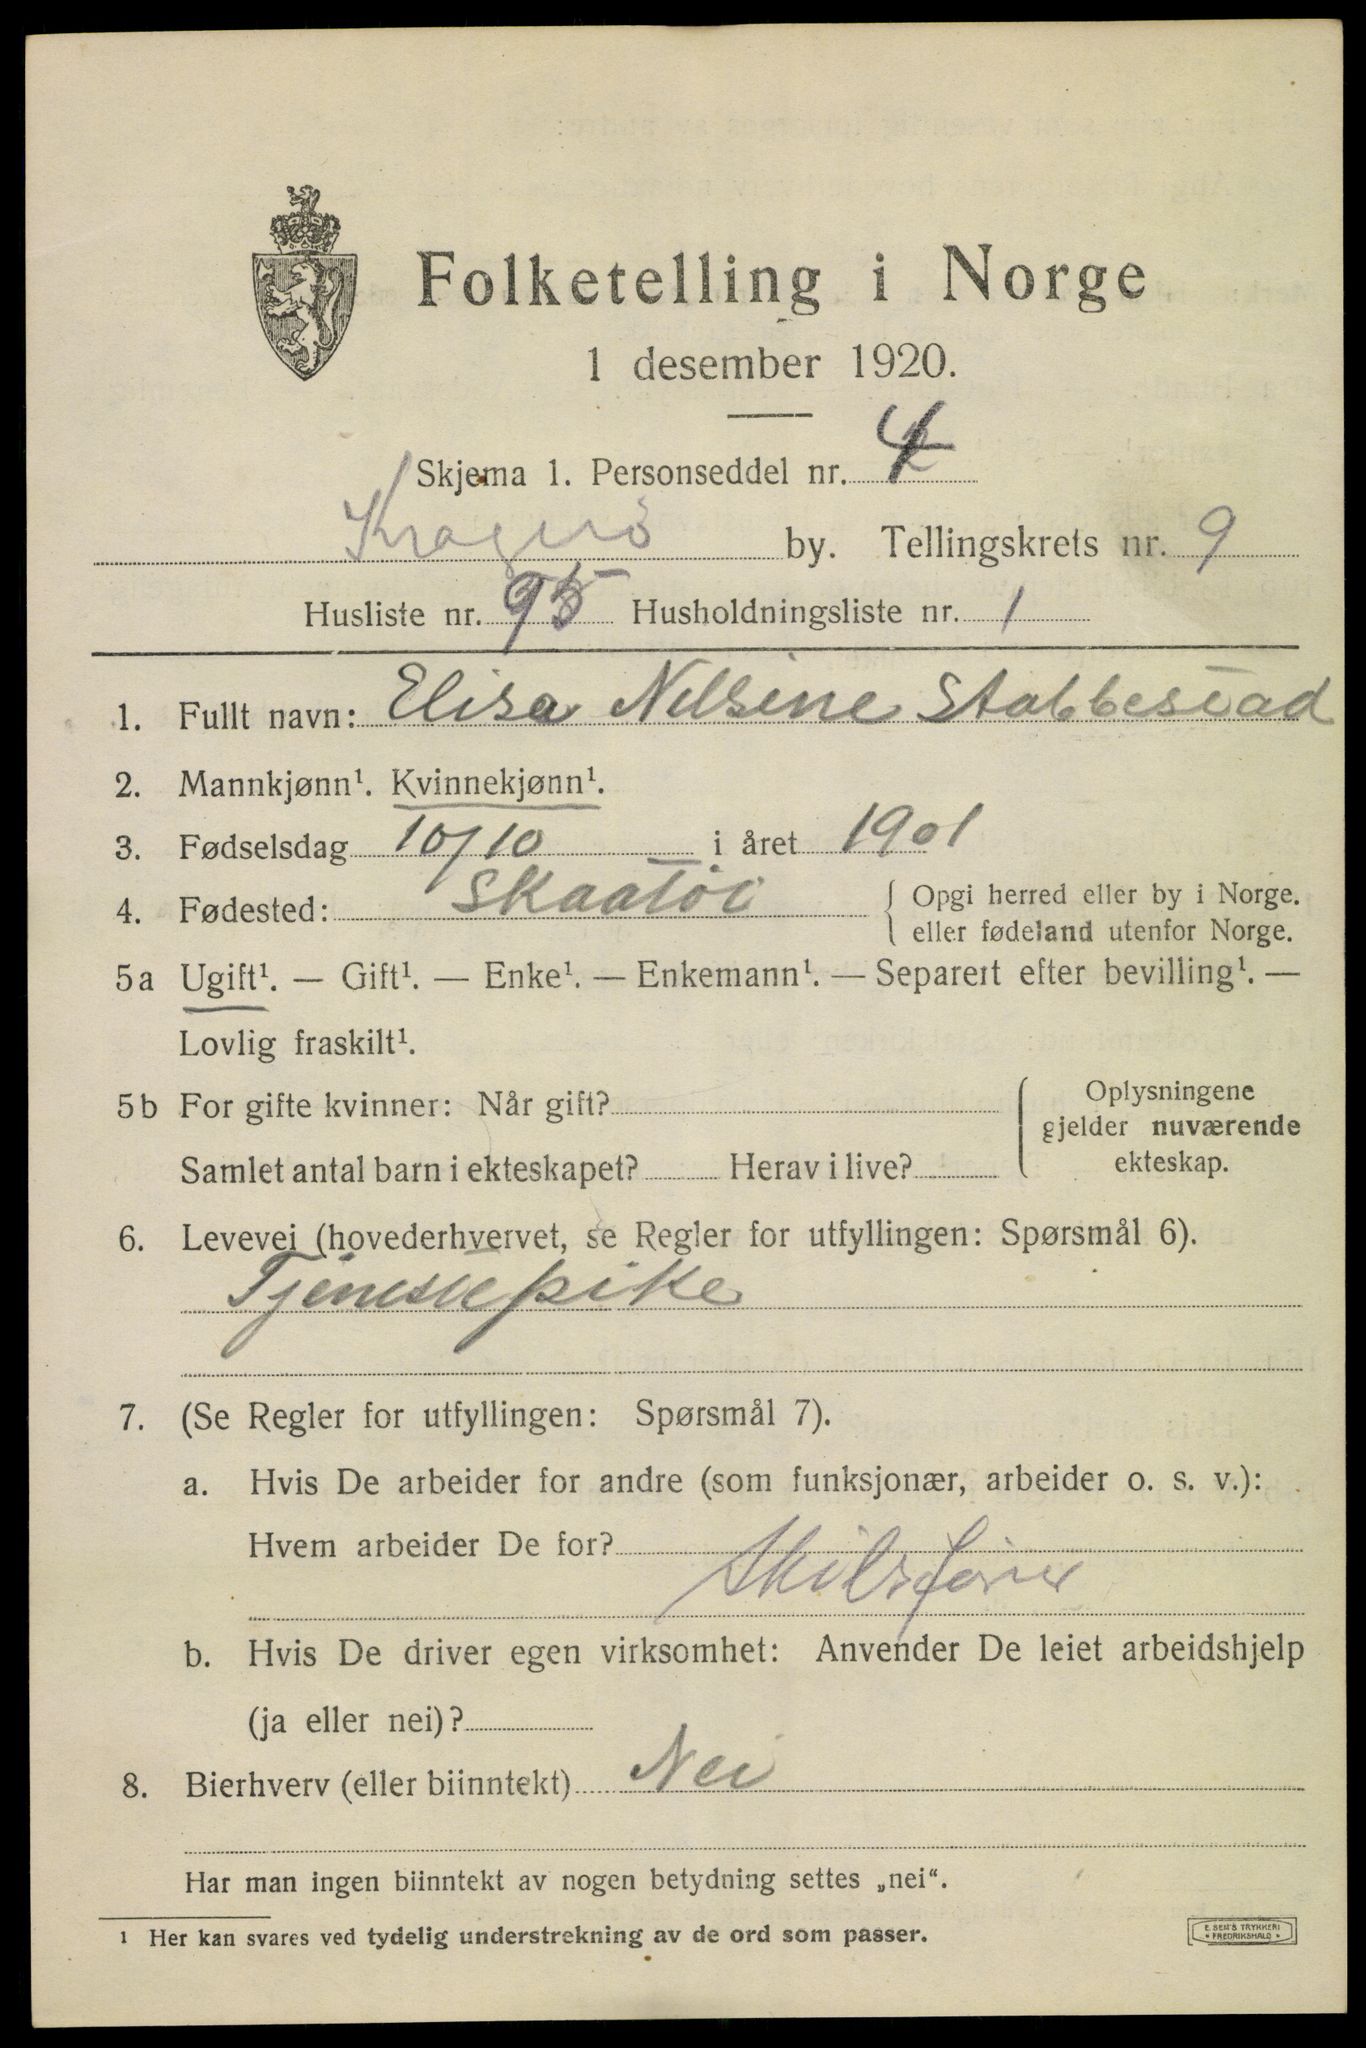 Folketelling i Norge
1 desember 1920.
Skjema 1. Personseddel nr. 4
Kragerö by. Tellingskrets nr. 9
Husliste nr. 95 Husholdningsliste nr. 1
1. Fullt navn: Elisa Nilsine Stabbestad
2. Mannkjønn¹. Kvinnekjønn¹.
3. Fødselsdag 10/10 i året 1901
4. Fødested: Skaatöi { Opgi herred eller by i Norge.
eller fødeland utenfor Norge.
5a Ugift¹. — Gift¹. — Enke¹. — Enkemann¹. — Separert efter bevilling¹. —
Lovlig fraskilt¹.
5b For gifte kvinner: Når gift? { Oplysningene
gjelder nuværende
Samlet antal barn i ekteskapet? Herav i live? ekteskap.
6. Levevei (hovederhvervet, se Regler for utfyllingen: Spørsmål 6).
Tjenestepike
7. (Se Regler for utfyllingen: Spørsmål 7).
a. Hvis De arbeider for andre (som funksjonær, arbeider o. s. v.):
Hvem arbeider De for?
b. Hvis De driver egen virksomhet: Anvender De leiet arbeidshjelp
(ja eller nei)?
8. Bierhverv (eller biinntekt) Nei
Har man ingen biinntekt av nogen betydning settes „nei“.
¹ Her kan svares ved tydelig understrekning av de ord som passer.
E. SEM'S TRYKKERI
• FREDRIKSHALD •